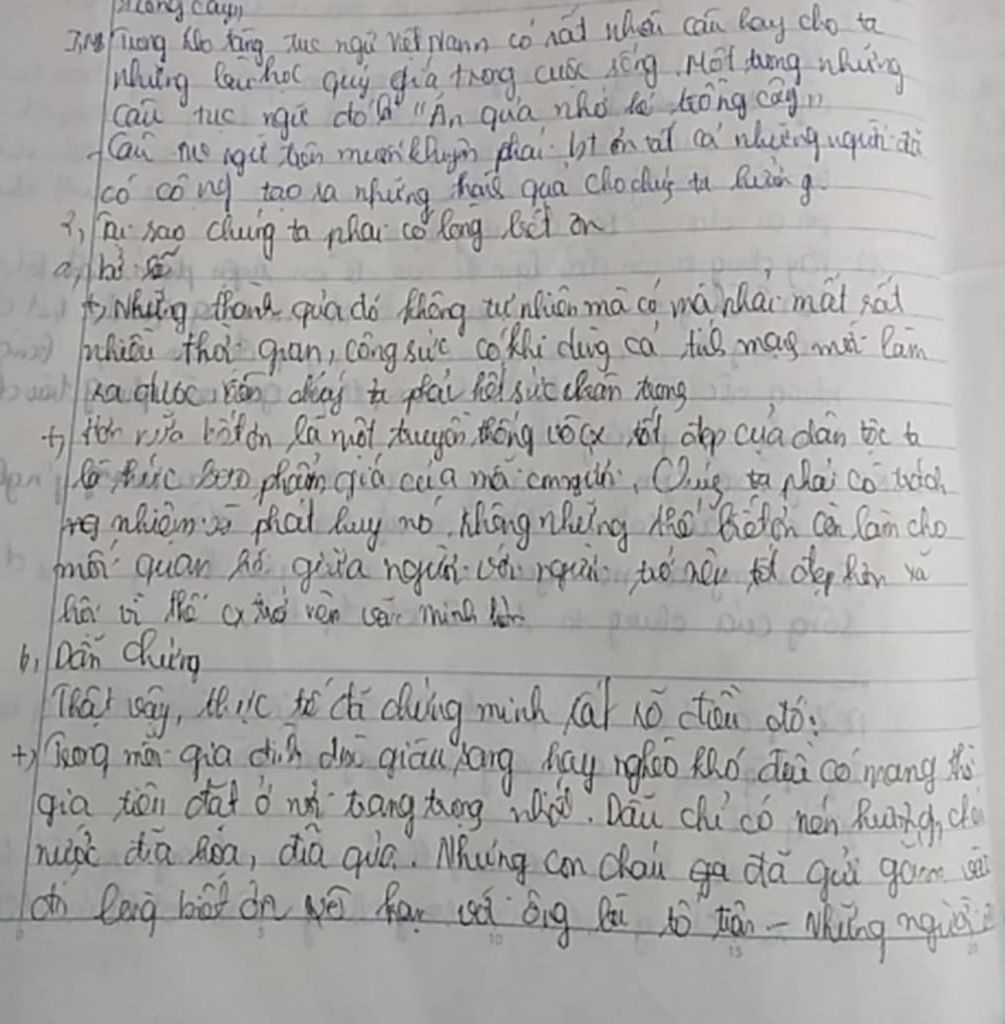 trồng cây"
Trong kho tàng tục ngữ Việt Nam có rất nhiều câu hay cho ta
những bài học quý giá trong cuộc sống. Một trong những
câu tục ngữ đó là "Ăn quả nhớ kẻ trồng cây"
- Câu tục ngữ trên muốn khuyên phải bt ơn tất cả những người đã
có công tạo ra những thành quả cho chúng ta hưởng.
2, Tại sao chúng ta phải có lòng biết ơn
a, Lí lẽ
+, Những thành quả đó không tự nhiên mà có mà phải mất rất
nhiều thời gian, công sức có khi dùng cả tính mạng mới làm
ra được nên chúng ta phải hết sức chân trọng
+, Hơn nữa biết ơn là một truyền thống vô cx tốt đẹp của dân tộc ta
là thước đo phẩm giá của mỗi con người. Chúng ta phải có trách
nhiệm phát huy nó. Không những thế biết ơn còn làm cho
mối quan hệ giữa người với người trở nên tốt đẹp hơn xã
hội vì thế cx trở nên văn minh hơn
b, Dẫn chứng
Thật vậy, thực tế đã chứng minh rất rõ điều đó:
+, Trong mỗi gia đình dù giàu sang hay nghèo khó đều có mang thờ
gia tiên đặt ở nơi trang trọng nhất. Dẫu chỉ có nén hương, chén
nước đĩa hóa, đĩa quả. Nhưng con cháu ga đã gửi gắm vào
đó lòng biết ơn vô hạn với ông bà tổ tiên - Những người